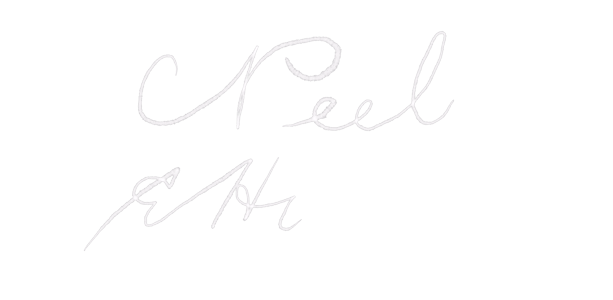 C Peel
E H